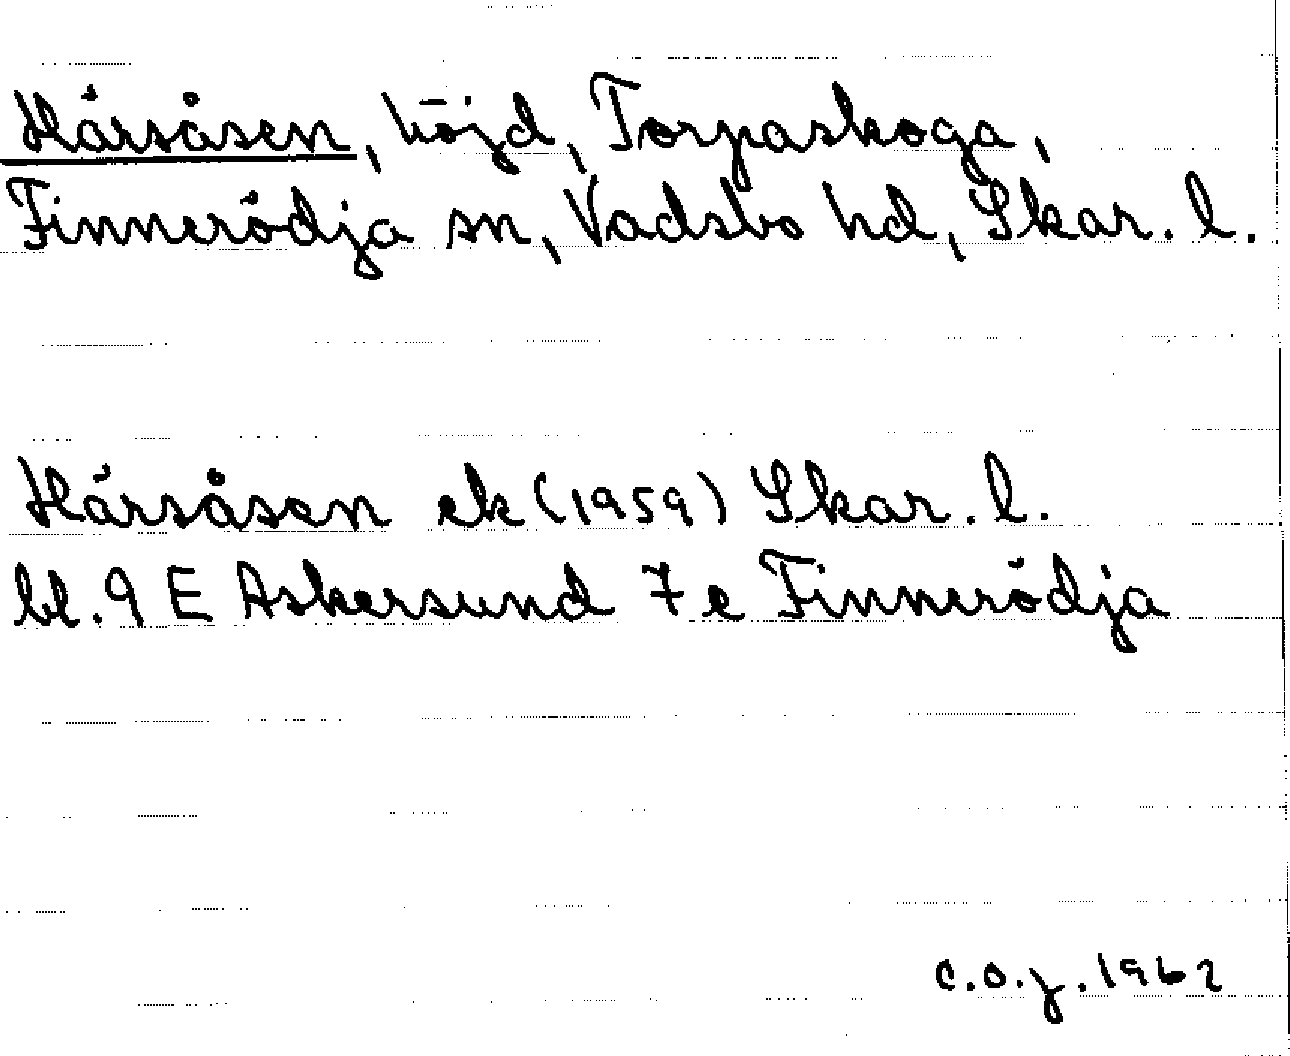 Härsåsen, höjd, Torpaskoga,
Finnerödja sn, Vadsbo hd, Skar. l.
Härsåsen ek (1959) Skar. l.
bl. 9 E Askersund 7 e Finnerödja
C.O.J. 1962